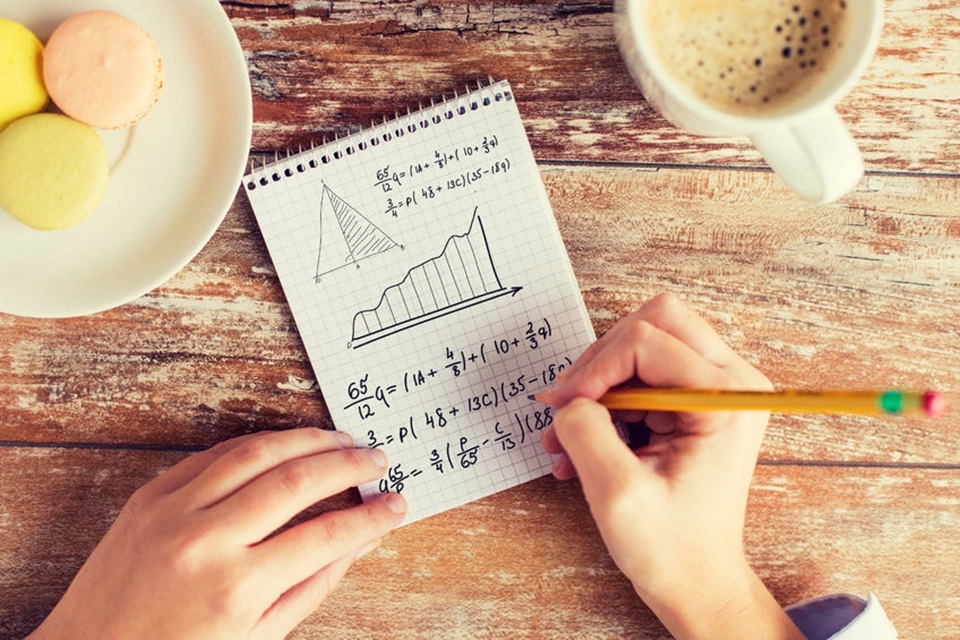 65/12 q = (1A + 4/8) + (10 + 2/3 q)
3/4 = P(48 + 13C)(35-18q)
65/12 q = (1A + 4/8) + (10 + 2/3 q)
3 = P(48 + 13C)(35-18q)
q 65/ = 3/4 (P/65 - C/13)(88